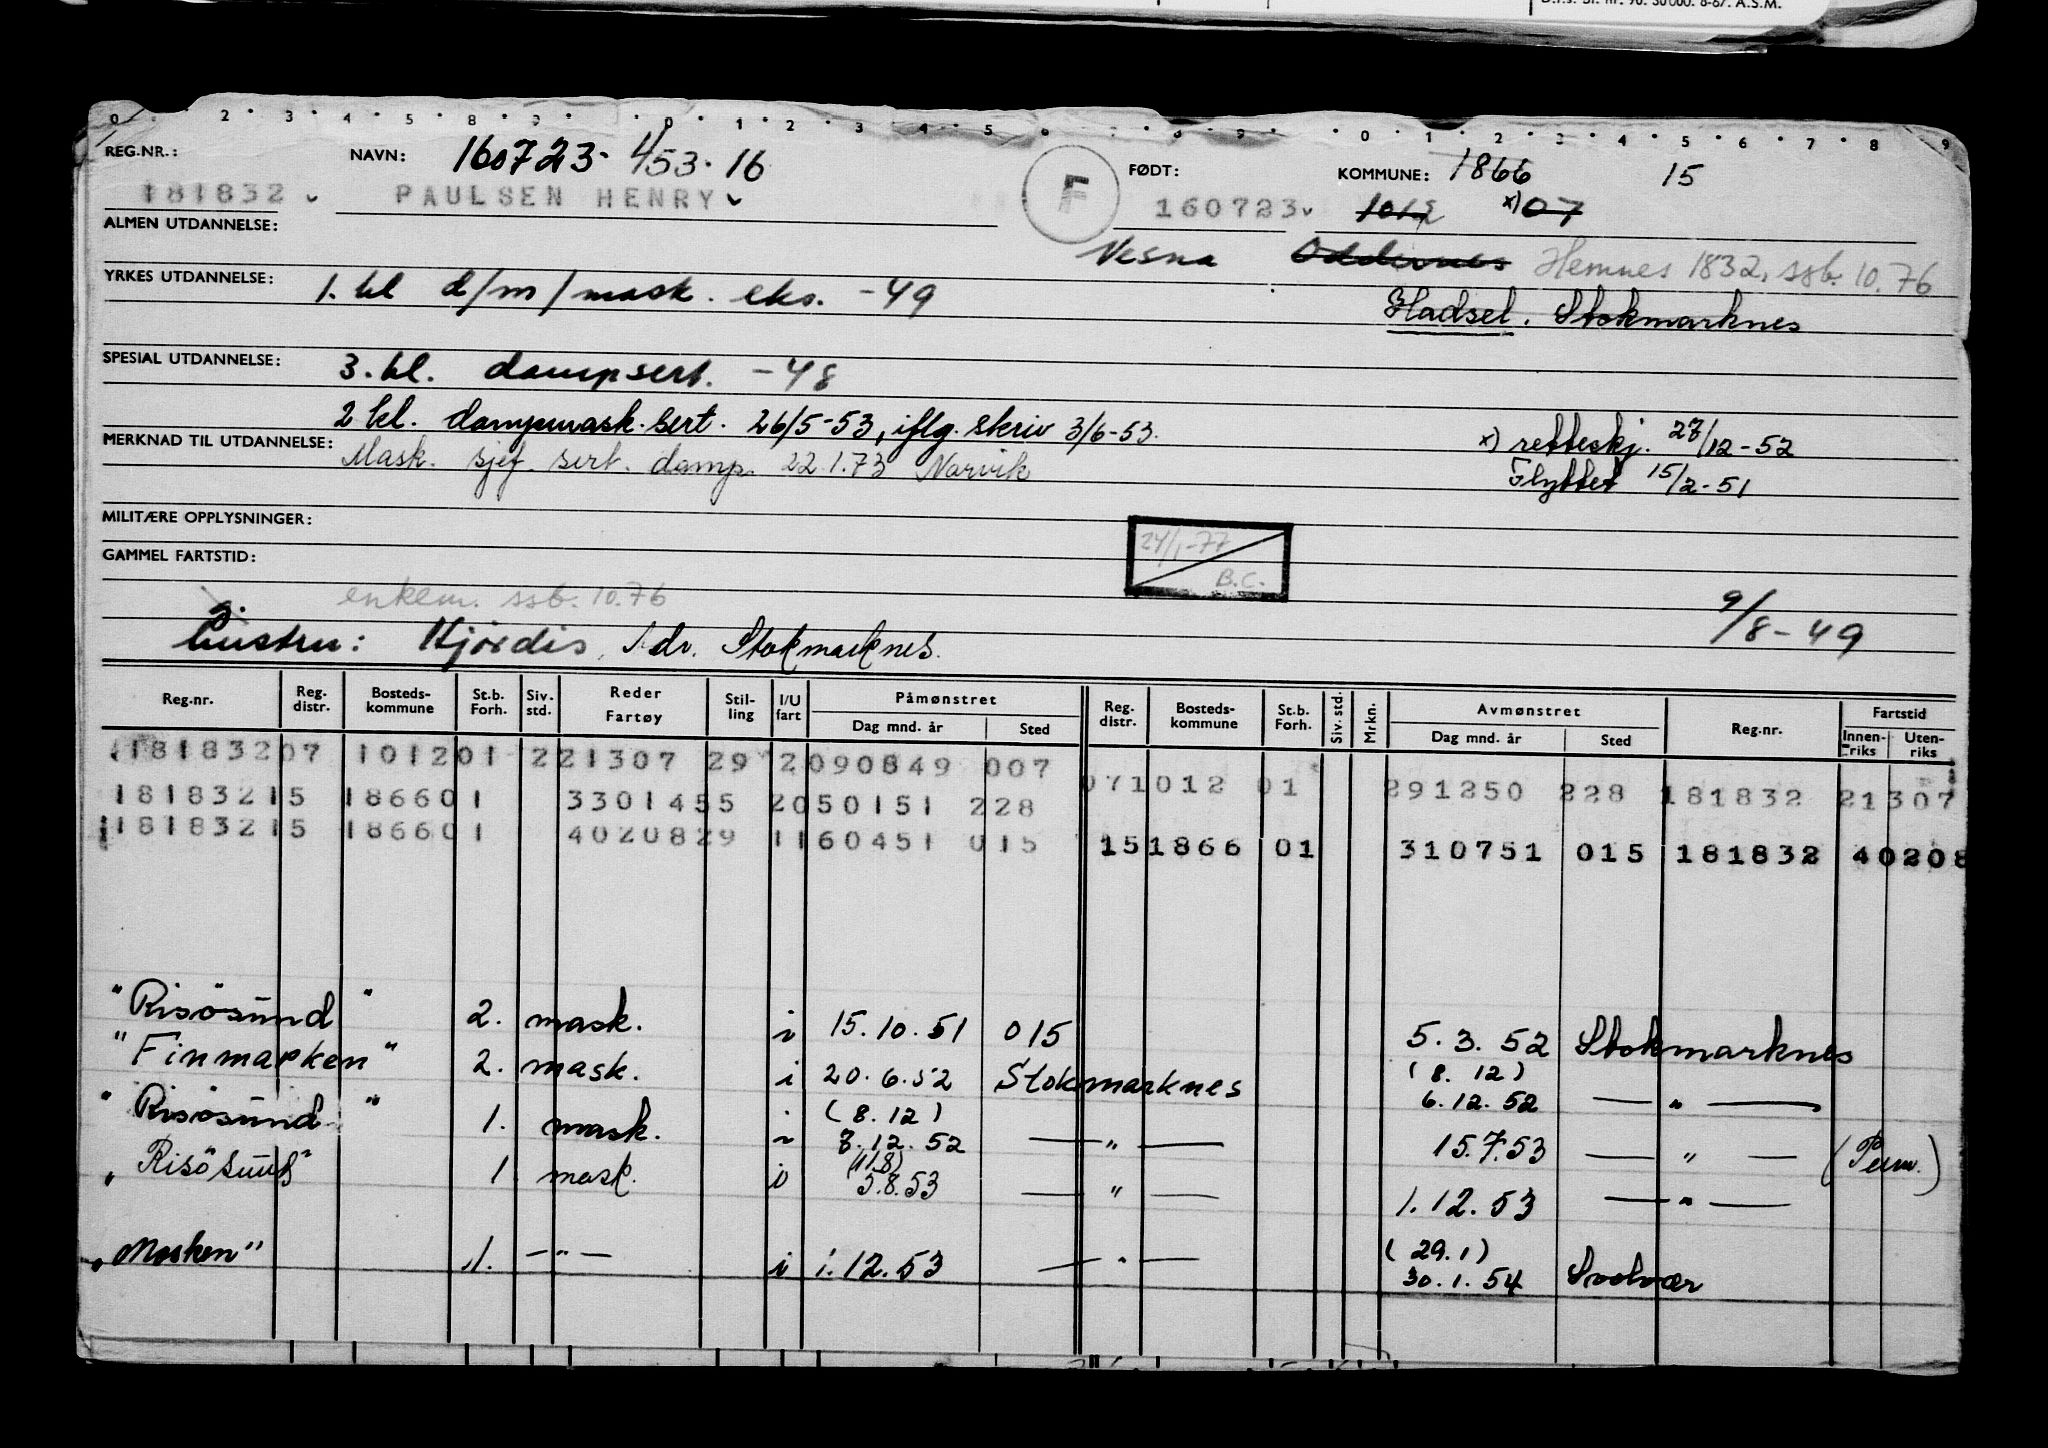 D.f.s. Bl. nr. 90. 30 000. 8-67. A.S.M.
0 2 3 4 5 8 9 0 1 2 3 4 5 6 7 8 9 0 1 2 3 4 5 6 7 8 9
REG.NR.: NAVN: 160723-453-16 F FØDT: KOMMUNE: 1866 15
181832 PAULSEN HENRY 160723 1012 x) 07
ALMEN UTDANNELSE:
Nesna Oddernes Hemnes 1832, ssb. 10.76
YRKES UTDANNELSE: 1. kl d/m/mask. eks. -49
Hadsel. Stokmarknes
SPESIAL UTDANNELSE: 3. kl. dampsert. -48
2 kl. dampmask.sert. 26/5-53, iflg. skriv 3/6-53.
MERKNAD TIL UTDANNELSE: Mask. sjef. sert. damp. 22.1.73 Narvik
x) retteskj. 27/12-52
Flyttet 15/2-51
MILITÆRE OPPLYSNINGER:
GAMMEL FARTSTID:
24/1-77
B.C.
enkem. ssb. 10.76
9/8-49
Hustru: Hjördis, Adr. Stokmarknes.
Reg.nr. Reg. distr. Bosteds- kommune St.b. Forh. Siv. std. Reder Fartøy Stil- ling I/U fart Påmønstret Dag mnd. år Sted Reg. distr. Bosteds- kommune St.b. Forh. Siv. std. Mrkn. Avmønstret Dag mnd. år Sted Reg.nr. Fartstid Innen- riks Uten- riks
18183207 101201 221307 29 2090849 007 071012 01 291250 228 181832 21307
18183215 186601 3301455 2050151 228
18183215 186601 4020829 1160451 015 151866 01 310751 015 181832 40208
"Risösund" 2. mask. i 15.10.51 015 5.3.52 Stokmarknes
"Finmarken" 2. mask. i 20.6.52 Stokmarknes (8.12) 6.12.52 — " —
"Risösund" 1. mask. i (8.12) 7.12.52 — " — 15.7.53 — " — (Perm.)
"Risösund" 1 mask. i (11.8) 5.8.53 — " — 1.12.53 — " —
"Mosken" 1. — " — i 1.12.53 — " — (29.1) 30.1.54 Svolvær